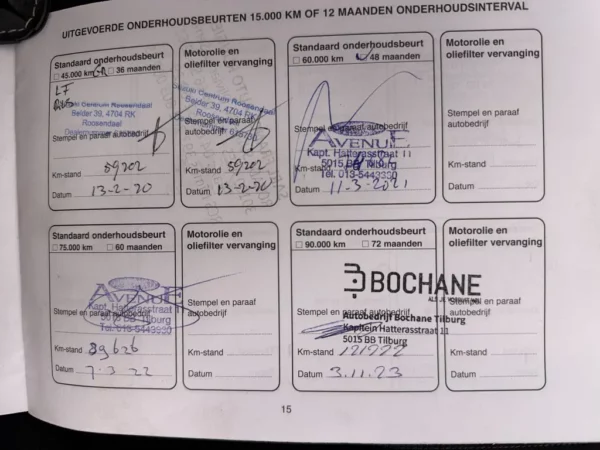 UITGEVOERDE ONDERHOUDSBEURTEN 15.000 KM OF 12 MAANDEN ONDERHOUDSINTERVAL
Standaard onderhoudsbeurt
45.000 km
36 maanden
Suzuki Centrum Roosendaal
Belder 39, 4704 RK
Roosendaal
Stempel en paraaf autobedrijf
Km-stand 59202
Datum 13-2-20
Motorolie en
oliefilter vervanging
Suzuki Centrum Roosendaal
Belder 39, 4704 RK
Roosendaal
Stempel en paraaf
autobedrijf
Km-stand 59202
Datum 13-2-20
Standaard onderhoudsbeurt
60.000 km
48 maanden
Stempel en paraaf autobedrijf
AVENUE
Kapt. Hatterasstraat 11
5015 BB Tilburg
Tel. 013-5443930
Km-stand
Datum 11-3-2021
Motorolie en
oliefilter vervanging
Stempel en paraaf
autobedrijf
Km-stand
Datum
Standaard onderhoudsbeurt
75.000 km
60 maanden
AVENUE
Stempel en paraaf autobedrijf
Kapt. Hatterasstraat 11
5015 BB Tilburg
Tel. 013-5443930
Km-stand 89626
Datum 7-3-22
Motorolie en
oliefilter vervanging
Stempel en paraaf
autobedrijf
Km-stand
Datum
Standaard onderhoudsbeurt
90.000 km
72 maanden
BOCHANE
Stempel en paraaf autobedrijf
Autobedrijf Bochane Tilburg
Kapitein Hatterasstraat 11
5015 BB Tilburg
Km-stand 121222
Datum 3.11.23
Motorolie en
oliefilter vervanging
Stempel en paraaf
autobedrijf
Km-stand
Datum
15